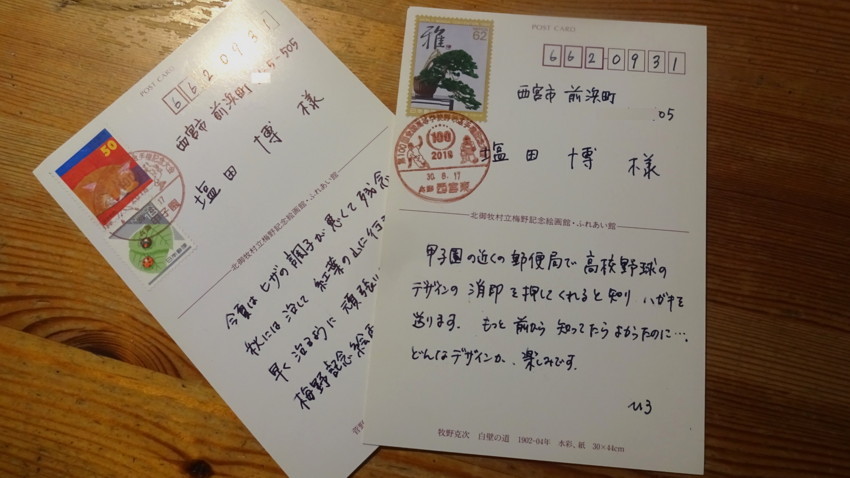 POST CARD
6620931
5-505
西宮市 前浜町
塩田 博 様
50
17
北御牧村立梅野記念絵画館・ふれあい館
今夏は ヒザの調子が悪くて残念
秋には治して 紅葉の山に行
早く治るように 頑張
梅野記念絵画
POST CARD
雅
62
6620931
西宮市 前浜町
05
100
2018
30.8.17
兵庫 西宮東
塩田 博 様
北御牧村立梅野記念絵画館・ふれあい館
甲子園の近くの郵便局で高校野球の
デザインの消印を押してくれると知り ハガキを
送ります. もっと前から知ってたらよかったのに…
どんなデザインか、楽しみです.
牧野克次 白壁の道 1902-04年 水彩、紙 30×44cm